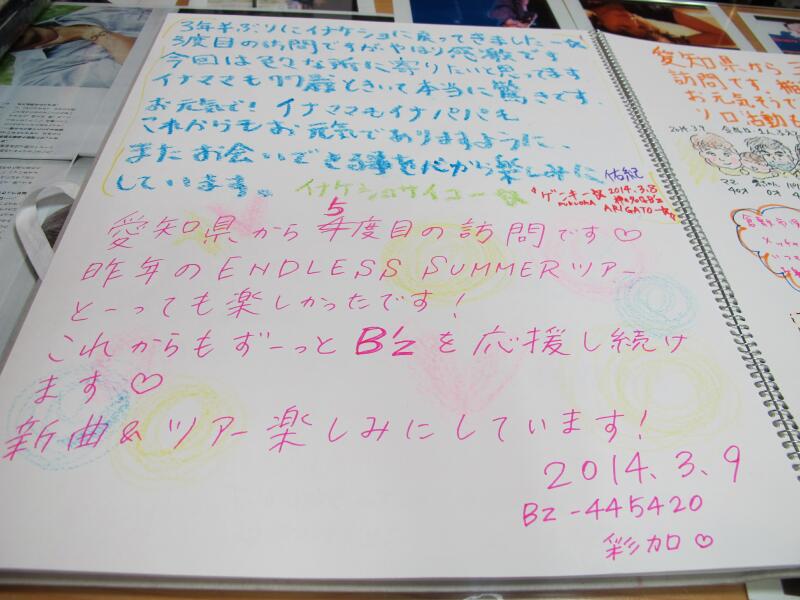 3年半ぶりにイナケショに戻ってきました
3度目の訪問ですがやはり感激です
今回は色々な所に寄りたいと思ってます
イナママも77歳ときいて本当に驚きです。
お元気で! イナママもイナパパも
これからもお元気でありますように、
またお会いできる事を心から楽しみに
しています。
佑紀
イナケショサイコー
ゲンキー
2014.3.8
FUKUOKA
ARIGATO
愛知県から5度目の訪問です♡
昨年のENDLESS SUMMERツアー
とーっても楽しかったです!
これからもずーっとB'zを応援し続け
ます♡
新曲&ツアー楽しみにしています!
2014.3.9
BZ-445420
彩加♡
愛知県から三
訪問です。
お元気そうで
ソロ活動も
ママ